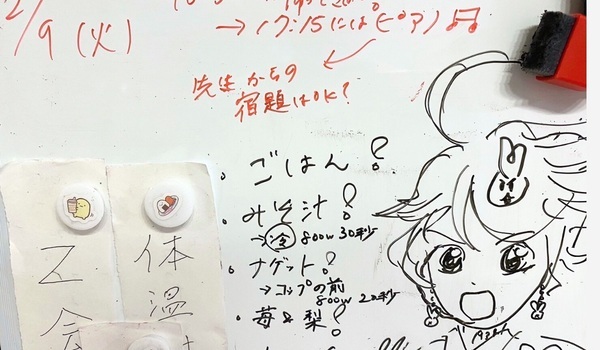 2/9(火)
→17:15にはピアノ
先生からの
宿題はOK?
・ごはん!
・みそ汁!
→冷 800w 30秒
・ナゲット!
→コップの前
800w 20秒
・苺&梨!
Z会
体温